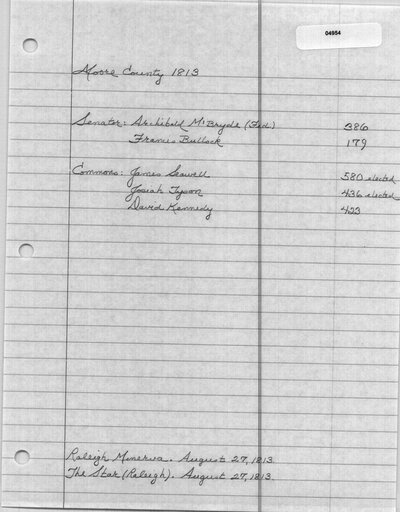 04954
Moore County 1813
Senator: Archibald McBryde (Fed.) 386
Francis Bullock 179
Commons: James Seawell 580 elected
Josiah Tyson 436 elected
David Kennedy 423
Raleigh Minerva. August 27, 1813.
The Star (Raleigh). August 27, 1813.